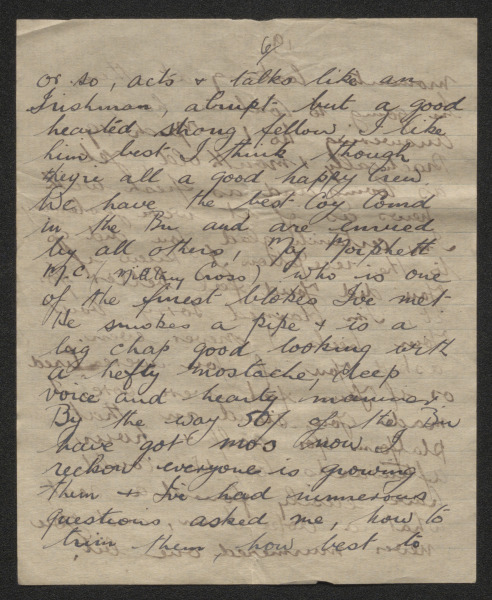 6)
or so, acts & talks like an
Irishman, abrupt but a good
hearted strong fellow I like
him best I think though
theyre all a good happy crew
We have the best Coy Comd
in the Bn and are envied
by all others, Maj Toiphett
M.C. (Military Cross) who is one
of the finest blokes I've met
He smokes a pipe & is a
big chap good looking with
a hefty mostache, deep
voice and hearty manner,
By the way 50% of the Bn
have got mos now I
reckon everyone is growing
them & I've had numerous
questions asked me, how to
trim them, how best to